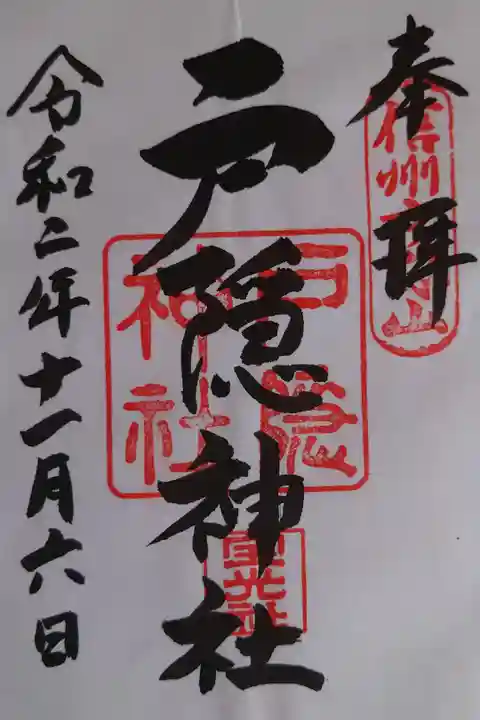 奉拝
信州戸隠山
戸隠神社
戸隠
神社
令和二年十一月六日